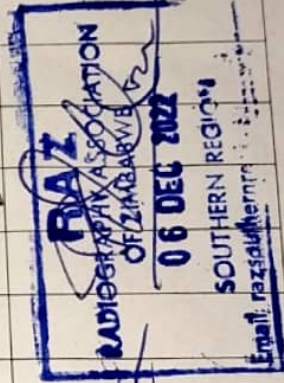 RAZ
RADIOGRAPHY ASSOCIATION
OF ZIMBABWE
06 DEC 2022
SOUTHERN REGION
Email: razsouthern